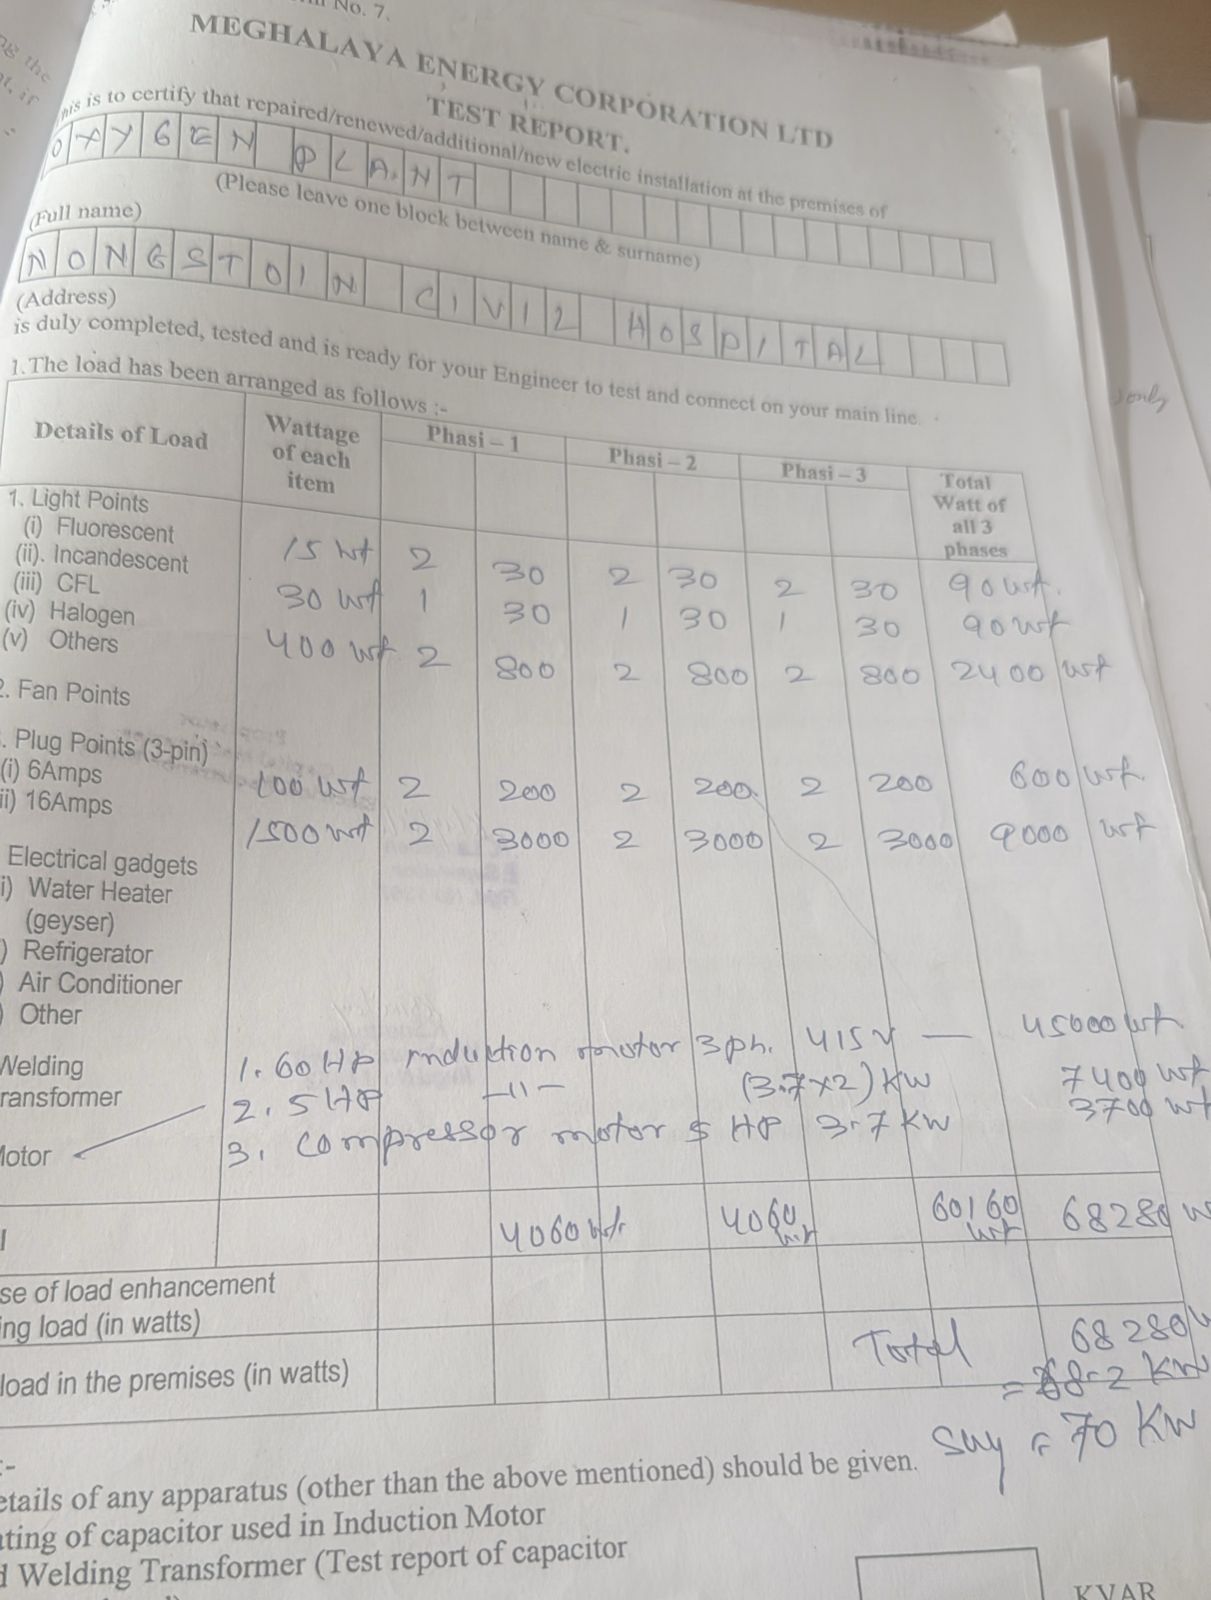 No. 7.
MEGHALAYA ENERGY CORPORATION LTD
TEST REPORT.
is to certify that repaired/renewed/additional/new electric installation at the premises of
OXYGEN PLANT
(Please leave one block between name & surname)
(Full name)
NONGSTOIN CIVIL HOSPITAL
(Address)
is duly completed, tested and is ready for your Engineer to test and connect on your main line.
1.The load has been arranged as follows :-
Details of Load Wattage of each item Phasi – 1 Phasi – 2 Phasi – 3 Total Watt of all 3 phases
1. Light Points
(i) Fluorescent
(ii). Incandescent 15 wt 2 30 2 30 2 30 90 wt.
(iii) CFL 30 wt 1 30 1 30 1 30 90 wt
(iv) Halogen 400 wt 2 800 2 800 2 800 2400 wt
(v) Others
2. Fan Points
. Plug Points (3-pin)
(i) 6Amps 100 wt 2 200 2 200 2 200 600 wt.
ii) 16Amps 1500 wt 2 3000 2 3000 2 3000 9000 wt
Electrical gadgets
i) Water Heater
(geyser)
) Refrigerator
) Air Conditioner
) Other
Welding
ransformer
Motor
1. 60 HP induction motor 3ph. 415 V — 45000 wt
2. 5 HP -11- (3.7x2) KW 7400 wt
3. Compressor motor 5 HP 3.7 KW 3700 wt
4060 wt 4060 wt 60160 wt 68280 w
se of load enhancement
ing load (in watts)
load in the premises (in watts) Total 68280
= 68.2 KW
Say = 70 KW
:-
etails of any apparatus (other than the above mentioned) should be given.
ting of capacitor used in Induction Motor
d Welding Transformer (Test report of capacitor
KVAR
only